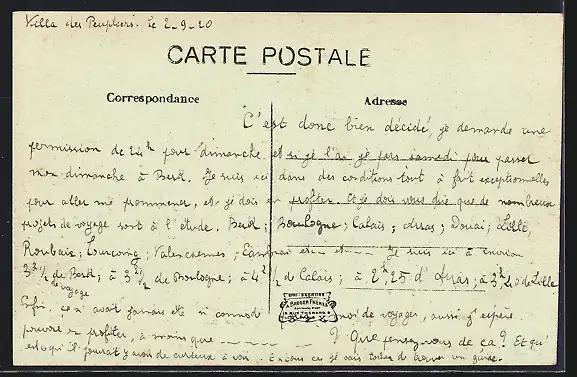 Villa des Peupliers. le 2-9-20
CARTE POSTALE
Correspondance
Adresse
C'est donc bien décidé, je demande une
permission de 24h pour dimanche et si je l'ai je pars samedi pour passer
mon dimanche à Berk. Je suis ici dans des conditions tout à fait exceptionnelles
pour aller me promener, et je dois en profiter. Et je dois vous dire que de nombreux
projets de voyage sont à l'étude. Berk; Boulogne; Calais; Arras; Douai; Lille,
Roubaix; Tourcoing; Valenciennes; Cambrai etc. et Je suis ici à environ
3h 1/2 de Berk; à 3h 1/2 de Boulogne; à 4h 1/2 de Calais; à 2h,25 d'Arras; à 3h,20 de Lille
de voyage
Enfin, ce n'avait jamais été si commode de voyages, aussi j'espère
pouvoir en profiter, à moins que ------ ? Que pensez-vous de ça? Et qu'
est-ce qu'il pourrait y avoir de curieux à voir. En tous cas je vais tâcher de trouver un guide.